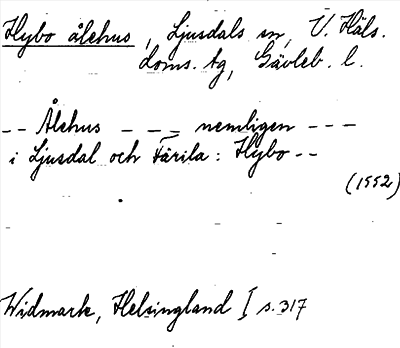 Hybo ålehus, Ljusdals sn, V. Häls.
doms. tg, Gävleb. l.
-- Ålehus --- nemligen ---
i Ljusdal och Färila: Hybo--
(1552)
Widmark, Helsingland I s. 317